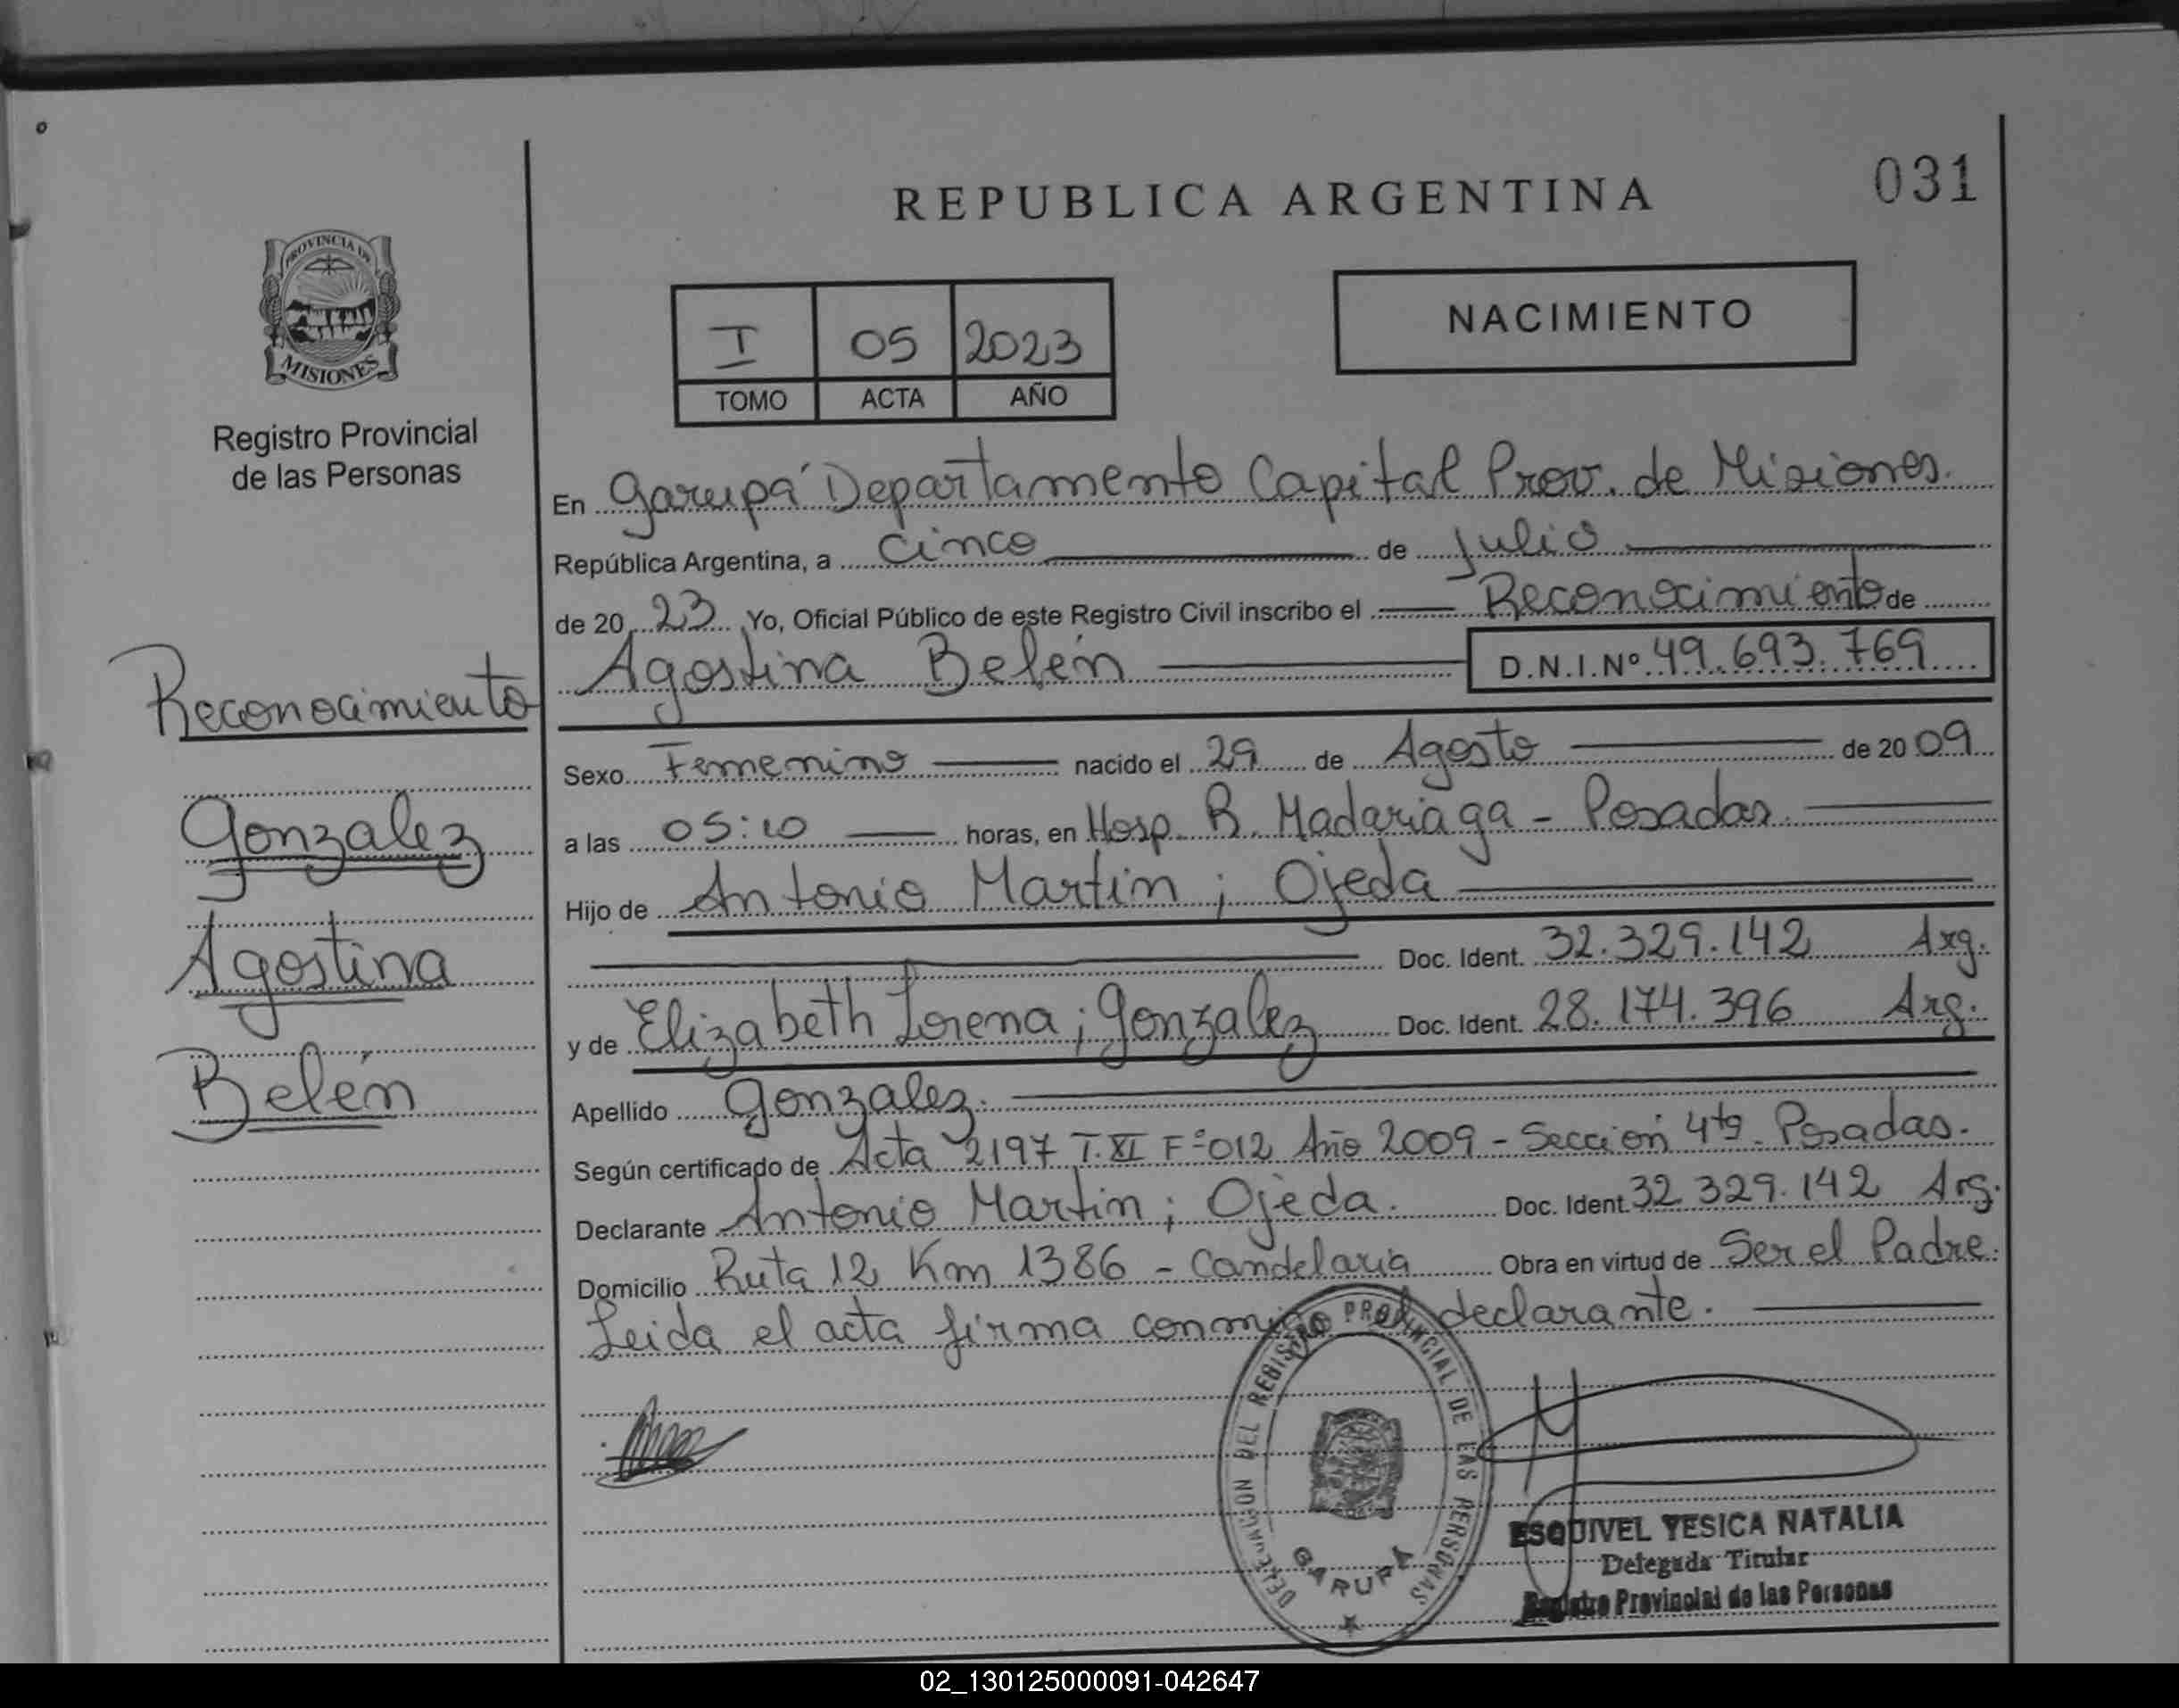 031
REPUBLICA ARGENTINA
PROVINCIA DE
MISIONES
Registro Provincial
de las Personas
I 05 2023
TOMO ACTA AÑO
NACIMIENTO
En Garupá Departamento Capital Prov. de Misiones.
República Argentina, a cinco de Julio
de 20 23 Yo, Oficial Público de este Registro Civil inscribo el Reconocimiento de
Agostina Belén D.N.I.Nº 49.693.769
Reconocimiento
Gonzalez
Agostina
Belén
Sexo Femenino nacido el 29 de Agosto de 20 09
a las 05:10 horas, en Hosp. R. Madariaga - Posadas
Hijo de Antonio Martin ; Ojeda
Doc. Ident. 32.329.142 Arg.
y de Elizabeth Lorena ; Gonzalez Doc. Ident. 28.174.396 Arg.
Apellido Gonzalez.
Según certificado de Acta 2197 T. XI Fº 012 Año 2009 - Sección 4ta Posadas.
Declarante Antonio Martin ; Ojeda. Doc. Ident 32.329.142 Arg.
Domicilio Ruta 12 Km 1386 - Candelaria Obra en virtud de Ser el Padre.
Leida el acta firma conmigo el declarante.
DELEGACION DEL REGISTRO PROVINCIAL DE LAS PERSONAS
GARUPA
ESQUIVEL YESICA NATALIA
Delegada Titular
Registro Provincial de las Personas
02_130125000091-042647